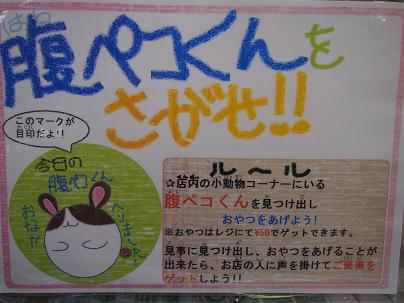 はら
腹ペコくんを
さがせ!!
このマークが
目印だよ!!
今日の
腹ペコくん
おなか
へりました
ルール
☆店内の小動物コーナーにいる
腹ペコくんを見つけ出し
おやつをあげよう!
※おやつはレジにて¥50でゲットできます。
見事に見つけ出し、おやつをあげることが
出来たら、お店の人に声を掛けてご褒美を
ゲットしよう!!